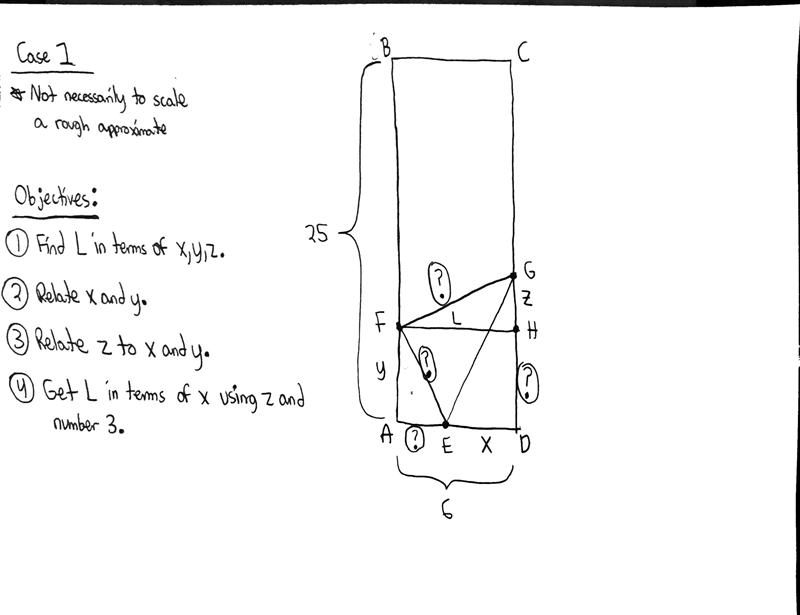 Case 1
* Not necessarily to scale
a rough approximate
Objectives:
① Find L in terms of x,y,z.
② Relate x and y.
③ Relate z to x and y.
④ Get L in terms of x using z and
number 3.
B
C
25
?
G
Z
F
L
H
y
?
?
A
?
E
X
D
6